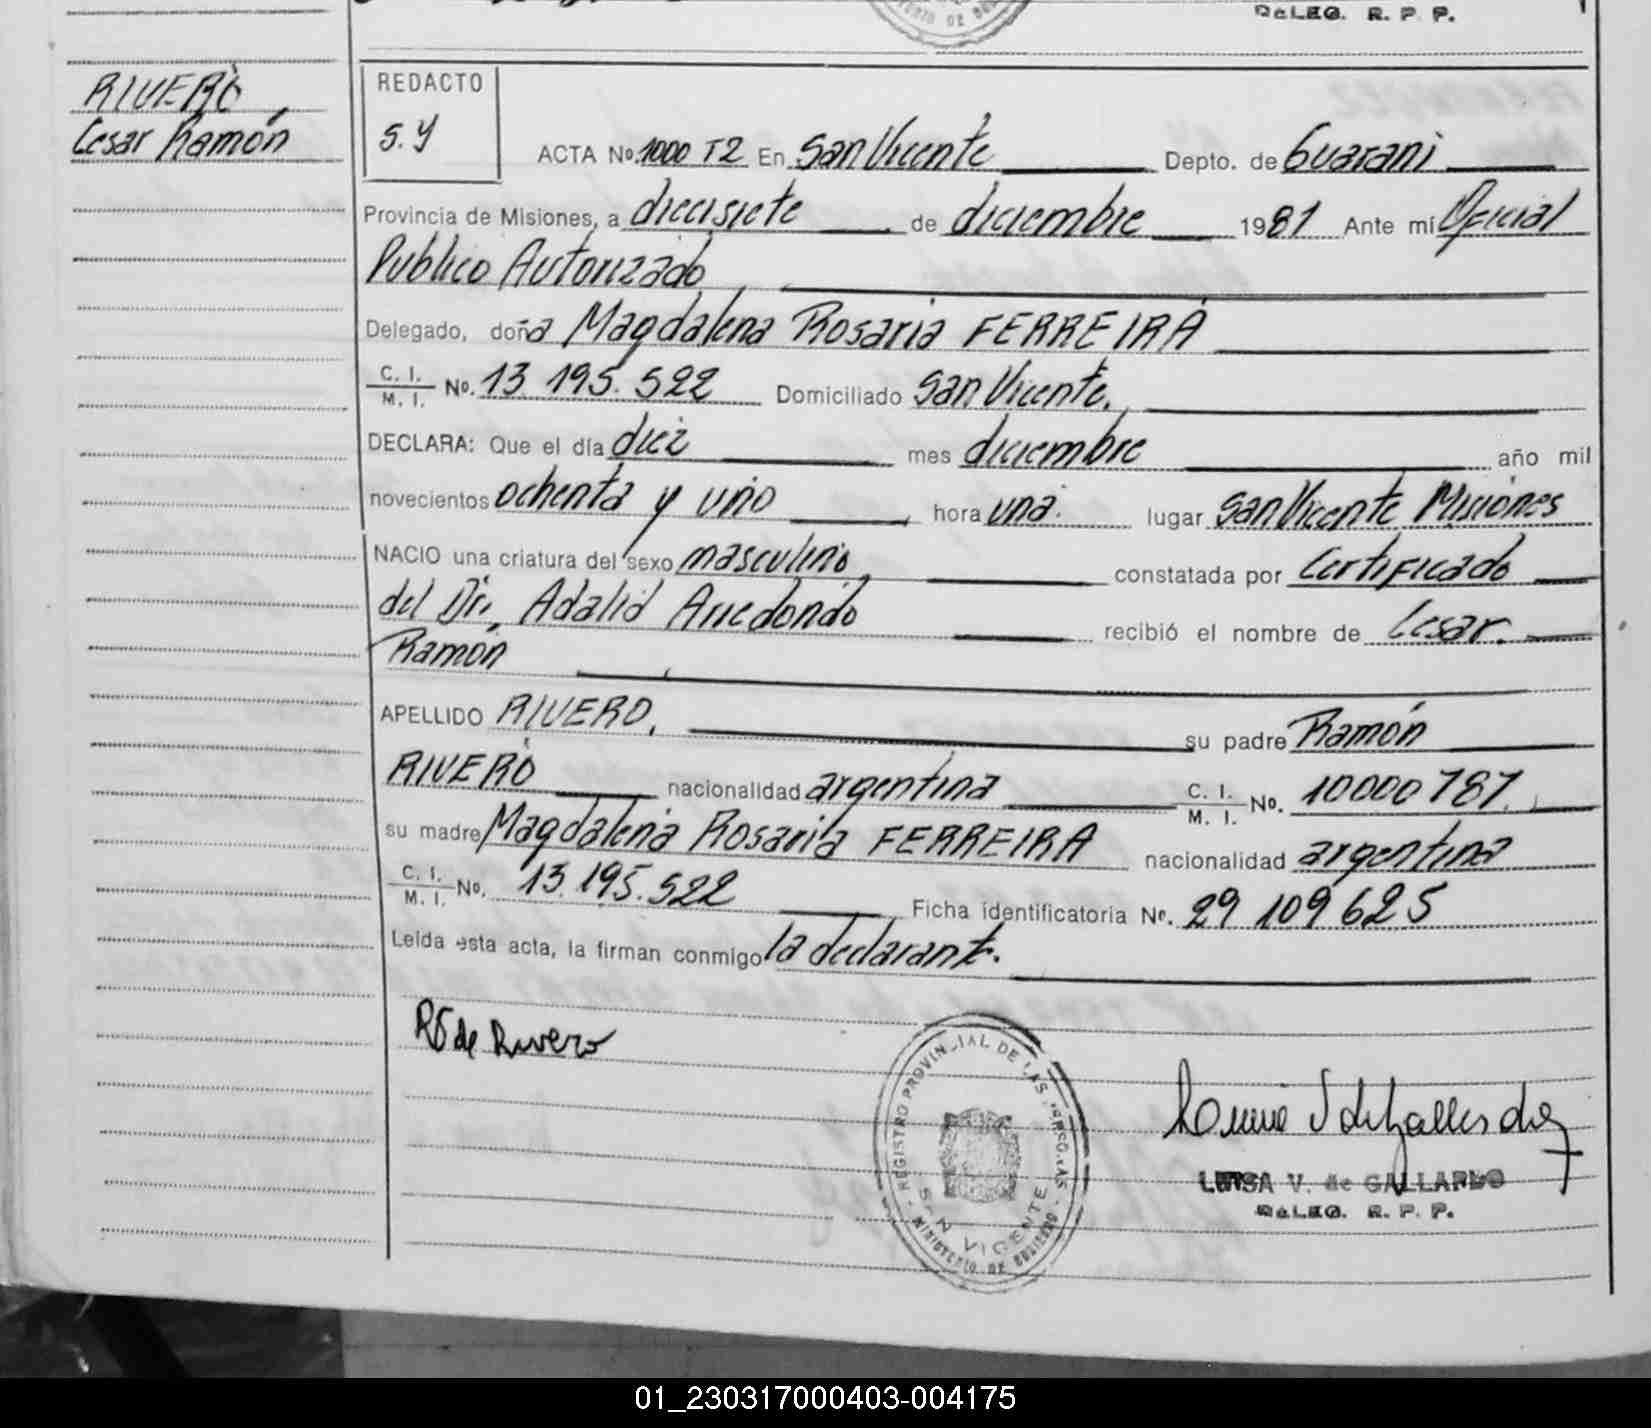 DELEG. R. P. P.
RIVERO,
Cesar Ramón
REDACTO
S.Y
ACTA No. 1000 T2 En San Vicente Depto. de Guarani
Provincia de Misiones, a diecisiete de diciembre 1981 Ante mí Oficial
Publico Autorizado
Delegado, doña Magdalena Rosaria FERREIRA
C. I. / M. I. No. 13.195.522 Domiciliado San Vicente,
DECLARA: Que el día diez mes diciembre año mil
novecientos ochenta y uno hora una. lugar San Vicente Misiones
NACIO una criatura del sexo masculino, constatada por Certificado
del Dr. Adalid Arredondo recibió el nombre de Cesar
Ramón
APELLIDO RIVERO, su padre Ramón
RIVERO nacionalidad argentina C. I. / M. I. No. 10000787
su madre Magdalena Rosaria FERREIRA nacionalidad argentina
C. I. / M. I. No. 13.195.522 Ficha identificatoria No. 29 109 625
Leída esta acta, la firman conmigo la declarante.
de Rivero
REGISTRO PROVINCIAL DE LAS PERSONAS
SAN VICENTE
MINISTERIO DE GOBIERNO
LUISA V. de GALLARDO
DELEG. R. P. P.
01_230317000403-004175